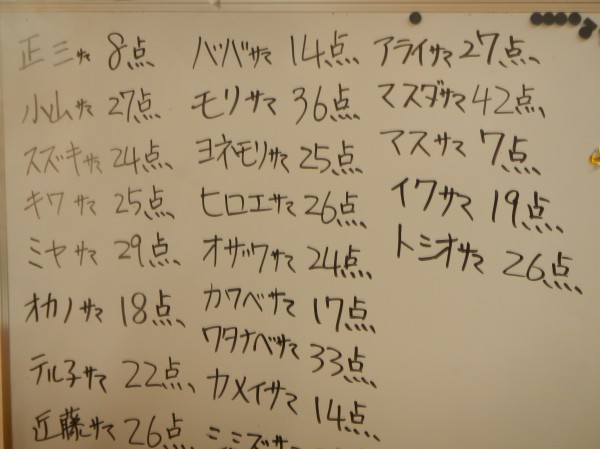 正三サマ 8点
小山サマ 27点
スズキサマ 24点
キワサマ 25点
ミヤサマ 29点
オカノサマ 18点
テル子サマ 22点
近藤サマ 26点
ババサマ 14点
モリサマ 36点
ヨネモリサマ 25点
ヒロエサマ 26点
オザワサマ 24点
カワベサマ 17点
ワタナベサマ 33点
カメイサマ 14点
アライサマ 27点
マスダサマ 42点
マスサマ 7点
イワサマ 19点
トシオサマ 26点